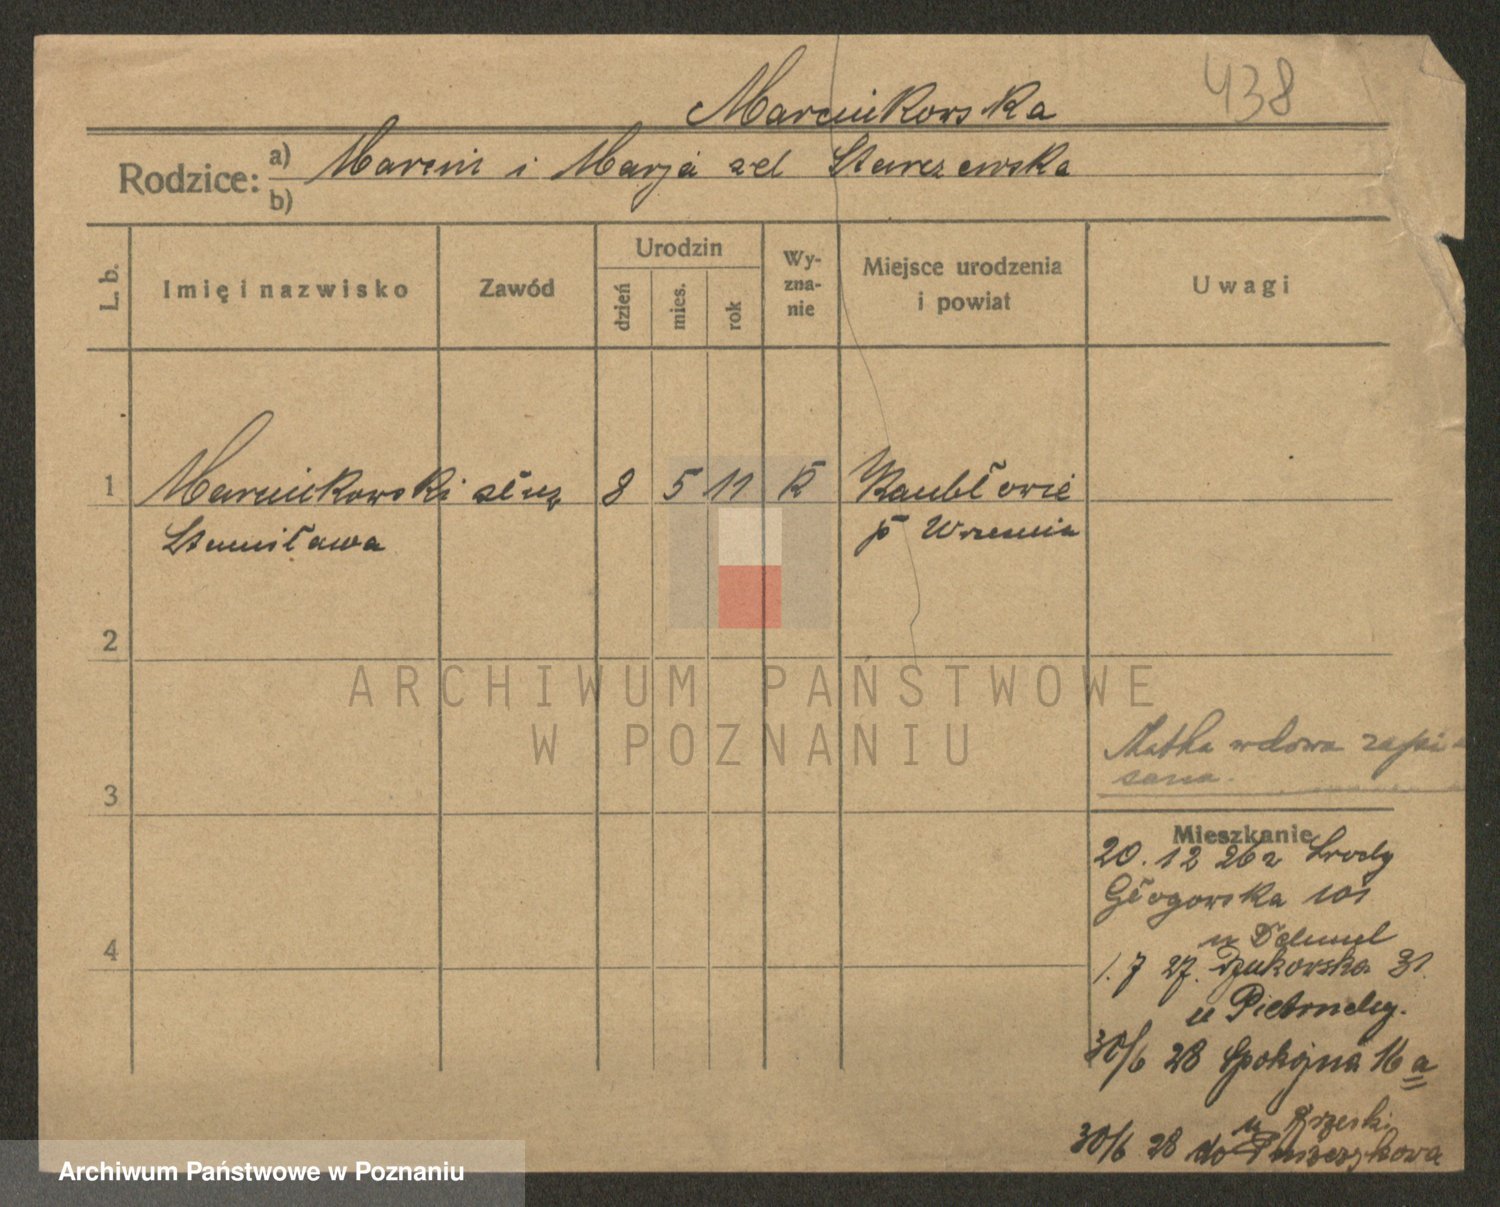 438
Marcinkowska
Rodzice: a) Marcin i Marja
b)
L. b.
Imię i nazwisko
Zawód
Urodzin
dzień
mies.
rok
Wy-
zna-
nie
Miejsce urodzenia
i powiat
Uwagi
1
Marcinkowski służ 8 5 11 K
Stanisława
p Września
2
3
4
Matka wdowa zapi-
sana.
Mieszkanie
20. 12 26 z Środy
Głogowska 101
u
1. 7 27. 31.
u
30/6 28 Spokojna 16 a
u
30/6 28 do
ARCHIWUM PAŃSTWOWE
W POZNANIU
Archiwum Państwowe w Poznaniu